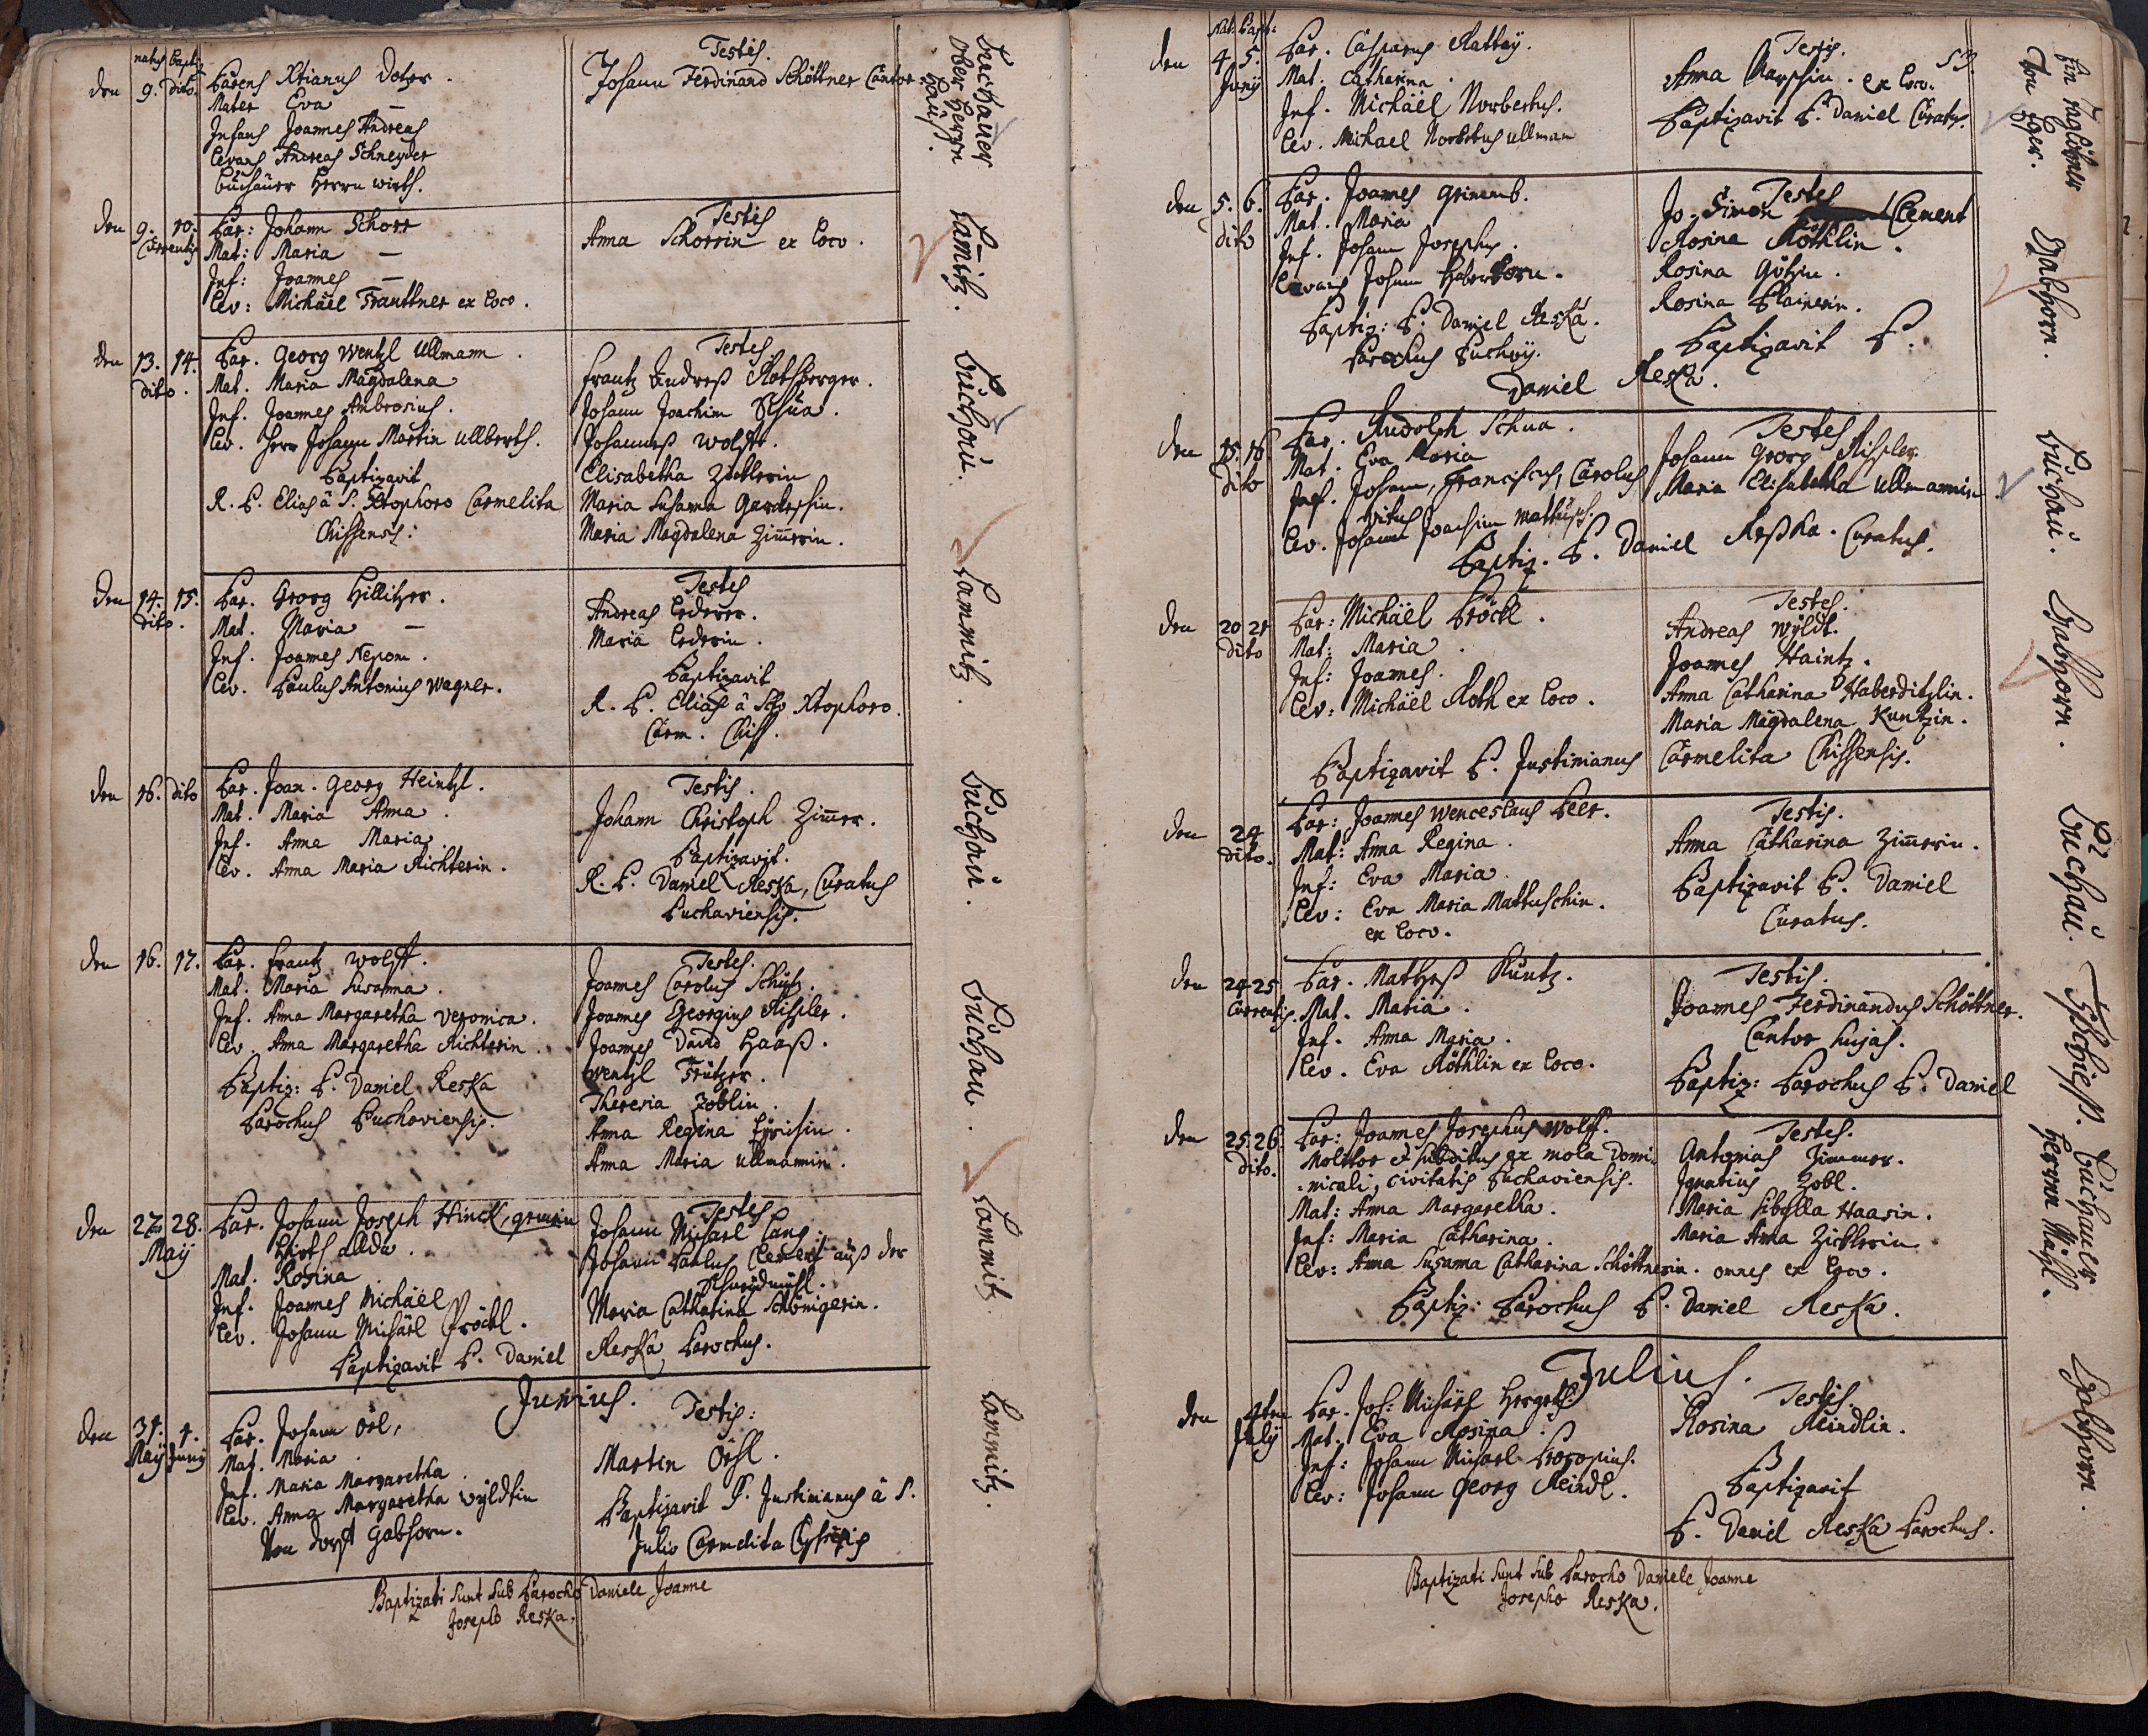 natus Baptiz
den 9. dito. Parens Xtianus Dotzer.
Mater Eva —
Infans Joannes Andreas
Levans Andreas Schneyder
Buchauer Herrn wirth.
Testis.
Johann Ferdinand Schöttner Cantor.
Buchauer
ober Herrn
Hauß.
den 9. 10. Currentis
Par: Johann Schorr
Mat: Maria —
Inf: Joannes —
Lev: Michäel Frauttner ex Loco.
Testis
Anna Schorrin ex Loco.
Lam̄itz.
den 13. 14. dito.
Par. Georg Wentzl Ullmann.
Mat. Maria Magdalena
Inf. Joannes Ambrosius.
Lev. Herr Johann Martin Ullberth.
Baptizavit
R. P. Elias â S. Xtophoro Carmelita
Chissensis:
Testes
Frantz Andreß Rothberger.
Johann Joachim Schua.
Johanneß Wolff.
Elisabetha Zicklerin
Maria Susanna
Maria Magdalena Zim̄erin.
Buchau.
den 14. 15. dito.
Par. Georg Hillitzer.
Mat. Maria —
Inf. Joannes Nepom.
Lev. Paulus Antonius Wagner.
Testes
Andreas Lederer.
Maria Lederin.
Baptizavit
R. P. Elias â Sto Xtophoro.
Carm. Chiss.
Lammitz.
den 16. dito
Par. Joan. Georg Heintzl.
Mat. Maria Anna.
Inf. Anna Maria.
Lev. Anna Maria Richterin.
Testis.
Johann Christoph Zim̄er.
Baptizavit.
R. P. Daniel Reska, Curatus
Puchaviensis.
Buchau.
den 16. 17.
Par. Frantz Wolff.
Mat. Maria Susanna.
Inf. Anna Margaretha Veronica.
Lev. Anna Margaretha Richterin.
Baptiz: P. Daniel Reska
Parochus Puchoviensis.
Testes.
Joannes Carolus Schütz.
Joannes Georgius Rissler.
Joannes David Haaß.
Wentzl Trützer.
Theresia Zoblin.
Anna Regina
Anna Maria Ullmannin.
Buchau.
den 27. 28. Maij
Par. Johann Joseph Hinck, gemein
Hirth allda.
Mat. Rosina
Inf. Joannes Michäel
Lev. Johann Michäel Pröckl.
Baptizavit P. Daniel Reska Parochus.
Testes
Johann Michael Lang
Johann Paulus Clement auß der
Maria Catharina Schönigerin.
Lammitz
Junius.
den 31. Maij 1. Junij
Par. Johann Öxl,
Mat. Maria
Inf. Maria Margaretha.
Lev. Anna Margaretha Wyldtin
Von dorff Gabhorn.
Testis:
Martin Öxl.
Baptizavit P. Justinianus â S.
Julio Carmelita
Lammitz.
Baptizati sunt sub Parocho Daniele Joanne
Josepho Reska.
Nat. Bapt:
den 4. 5. Junij
Par. Casparus Rattay.
Mat. Catharina.
Inf. Michäel Norbertus.
Lev. Michael Norbertus Ullman
Testis.
Anna ex Loco.
Baptizavit P. Daniel Curatus.
Ein
Von Eger.
den 5. 6. dito
Par. Joannes
Mat. Maria
Inf. Johann Josephus.
Levans Johann Haberkorn.
Baptiz: P. Daniel Reska.
Parochus Puchoy.
Testes
Jo. Simon Clement
Rosina Röthlin.
Rosina Götzin.
Rosina Plainerin.
Baptizavit P.
Daniel Reska.
Gabhorn.
den 15. 16. dito
Par. Rudolph Schua.
Mat. Eva Maria
Inf. Johann, Franciscus, Carolus
Vitus
Lev. Johann Joachim Mattusch.
Testes
Johann Georg Rissler.
Maria Elisabetha Ullmannin.
Baptiz. P. Daniel Reßka. Curatus.
Buchau.
den 20 21 dito
Par: Michäel Pröckl.
Mat: Maria.
Inf: Joannes.
Lev: Michäel Roth ex Loco.
Testes.
Andreas Wyldt.
Joannes Haintz.
Anna Catharina Haberditzlin.
Maria Magdalena Kuntzin.
Baptizavit P. Justinianus Carmelita Chissensis.
Gabhorn.
den 24 dito.
Par: Joannes Wenceslaus Peer.
Mat: Anna Regina.
Inf: Eva Maria.
Lev: Eva Maria Mattuschin.
ex Loco.
Testis.
Anna Catharina Zim̄erin.
Baptizavit P. Daniel
Curatus.
Buchau.
den 24 25 Currentis.
Par. Matheß Kuntz.
Mat. Maria.
Inf. Anna Maria.
Lev. Eva Röthlin ex Loco.
Testis.
Joannes Ferdinandus Schöttner.
Cantor hujas.
Baptiz: Parochus P. Daniel
den 25. 26. dito.
Par: Joannes Josephus Wolff.
Molitor et subditus ex mola Domi-
nicali, Civitatis Puchaviensis.
Mat: Anna Margaretha.
Inf: Maria Catharina.
Lev: Anna Susanna Catharina Schöttnerin. omnes ex Loco.
Testes.
Antonius Zimmer.
Ignatius Zobl.
Maria Sibylla Haasin.
Maria Anna Zicklerin
Baptiz: Parochus P. Daniel Reska.
Buchauer
Herrn Mühl.
Julius.
den 4ten July
Par. Joh: Michäel Hergeth.
Mat. Eva Rosina.
Inf: Johann Michael Procopius.
Lev: Johann Georg Reindl.
Testis.
Rosina Reindlin.
Baptizavit
P. Daniel Reska Parochus.
Gabhorn.
Baptizati sunt sub Parocho Daniele Joanne
Josepho Reska.